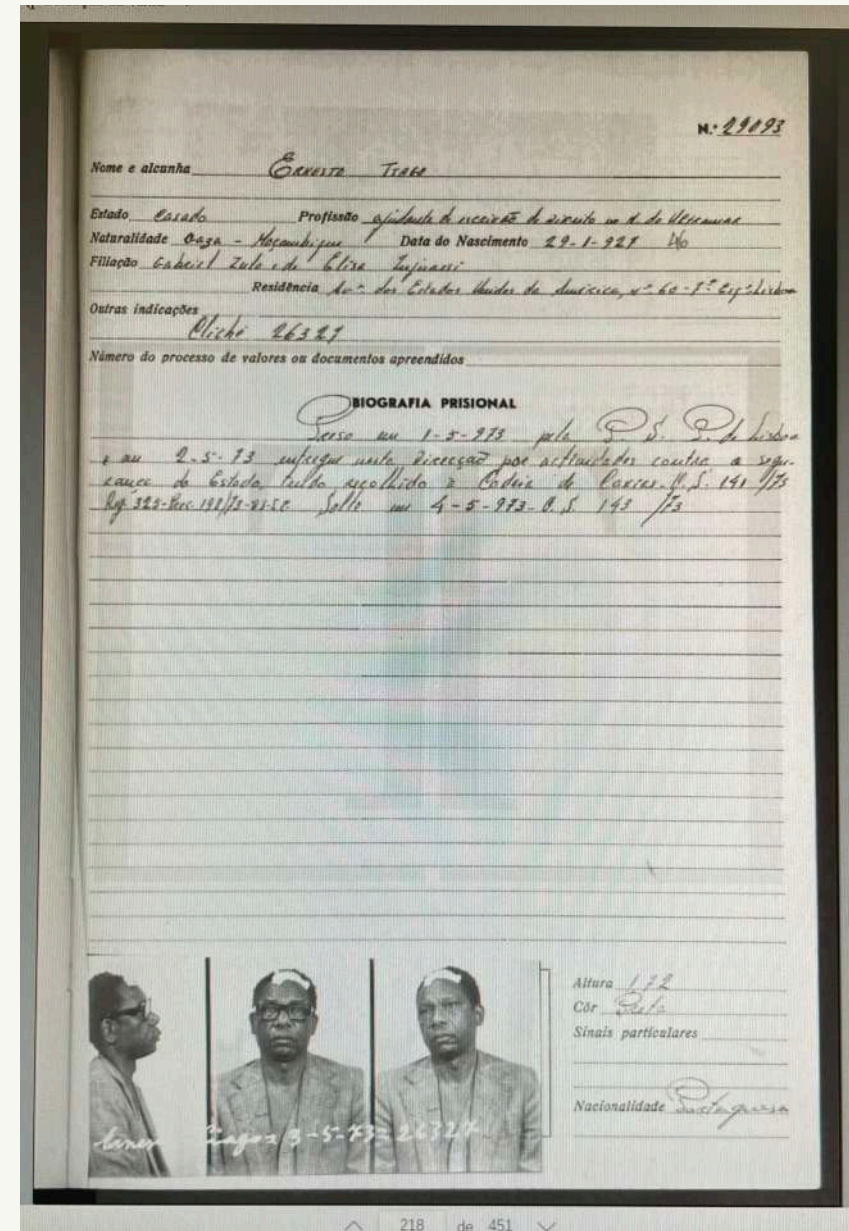 N.º 29093
Nome e alcunha Ernesto Tiago
Estado Casado Profissão ajudante de do Ultramar
Naturalidade Gaza - Moçambique Data do Nascimento 29-1-927
Filiação Gabriel Zulo e de Eliza
Residência Av.ª dos Estados Unidos da América, nº 60-7º Esqº Lisboa
Outras indicações
Cliché 26327
Número do processo de valores ou documentos apreendidos
BIOGRAFIA PRISIONAL
Preso em 1-5-973 pela P. S. P. de Lisboa
e em 2-5-73 entregue nesta Direcção por actividades contra a segu-
rança do Estado, tendo recolhido à Cadeia de Caxias. O.S. 141/73
325-Proc. Solto em 4-5-973- O.S. 143/73
Altura 1,72
Côr Preta
Sinais particulares
Nacionalidade Portuguesa
Tiago = 3-5-73 = 26327
218 de 451